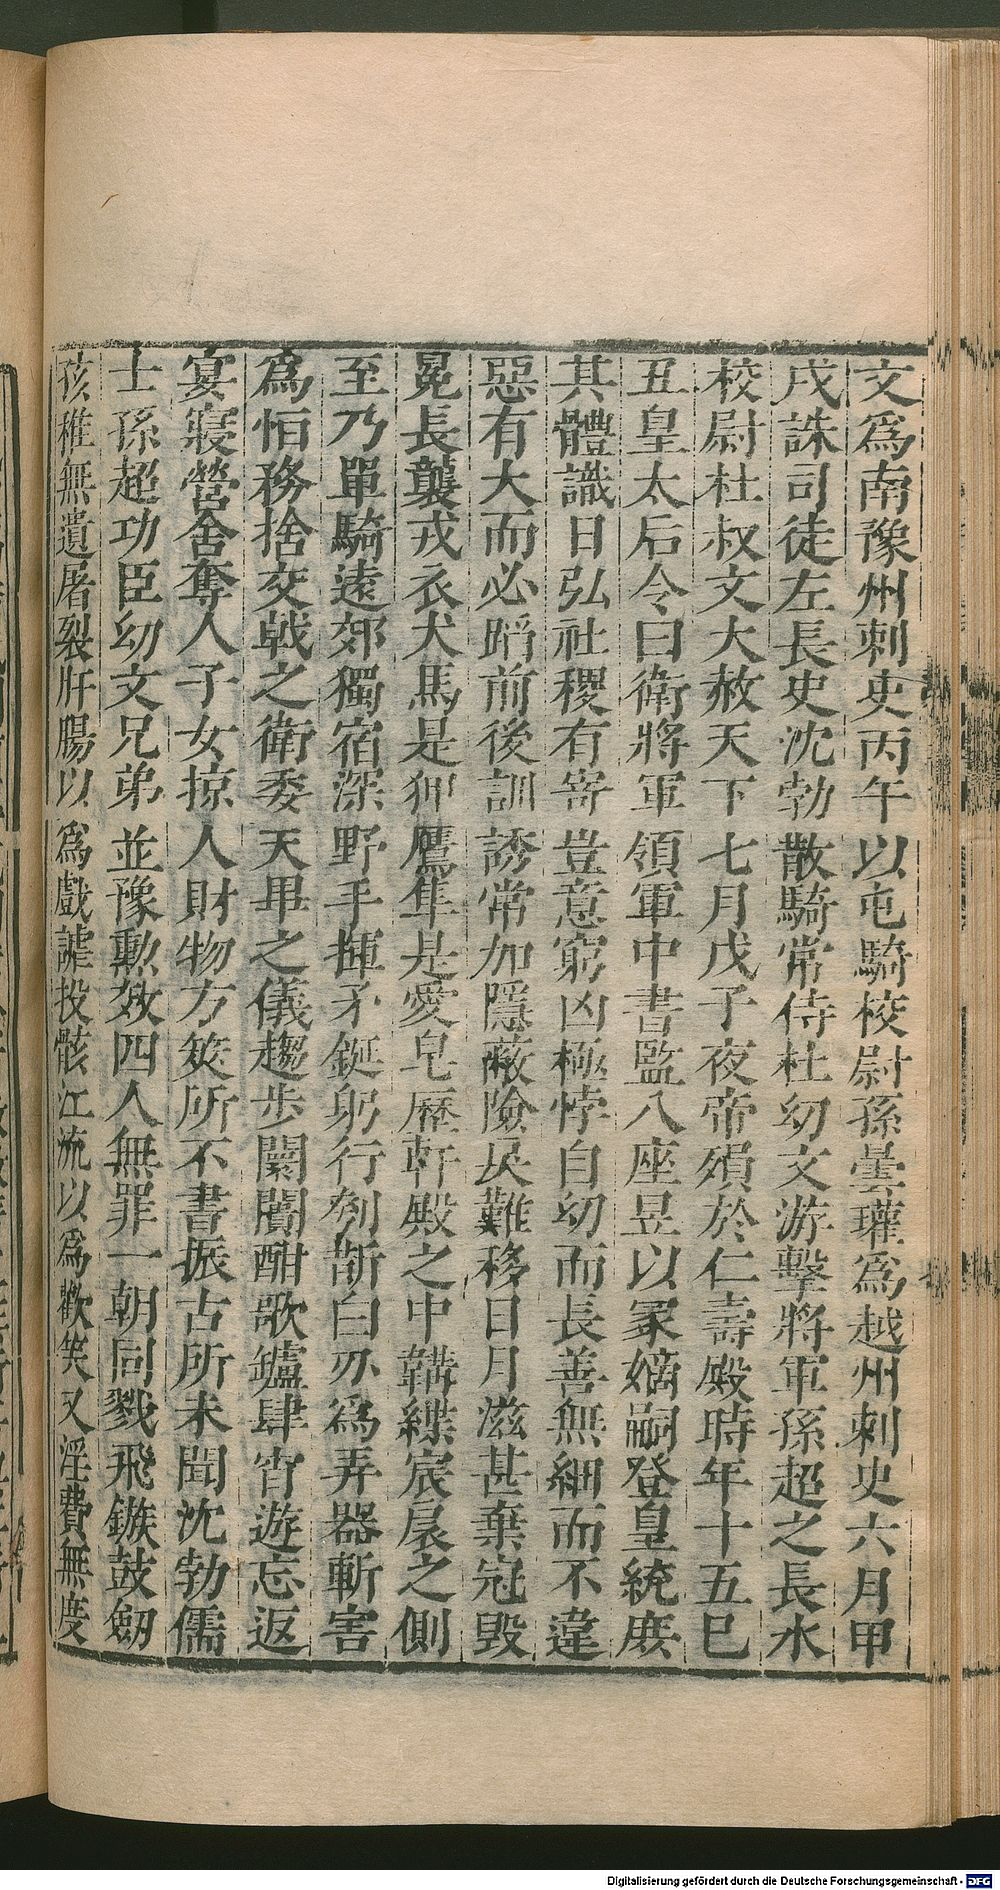 文爲南豫州刺史丙午以屯騎校尉孫曇瓘爲越州刺史六月甲
戌誅司徒左長史沈勃散騎常侍杜幼文游擊將軍孫超之長水
校尉杜叔文大赦天下七月戊子夜帝殞於仁壽殿時年十五巳
丑皇太后令曰衛將軍領軍中書監八座昱以冢嫡嗣登皇統庶
其體識日弘社稷有寄豈意窮凶極悖自幼而長善無細而不違
惡有大而必蹈前後訓誘常加隱蔽險戾難移日月滋甚棄冠毀
冕長襲戎衣犬馬是狎鷹隼是愛皂歷軒殿之中韝緤宸扆之側
至乃單騎遠郊獨宿深野手揮矛鋋躬行刳斮白刃爲弄器斬害
爲恒務捨交戟之衛委天畢之儀趨步闤闠酣歌壚肆宵遊忘返
宴寢營舍奪人子女掠人財物方筴所不書振古所未聞沈勃儒
士孫超功臣幼文兄弟並豫勲效四人無罪一朝同戮飛鏃鼓劒
孩稚無遺屠裂肝腸以爲戲謔投骸江流以爲歡笑又淫費無度
Digitalisierung gefördert durch die Deutsche Forschungsgemeinschaft - DFG